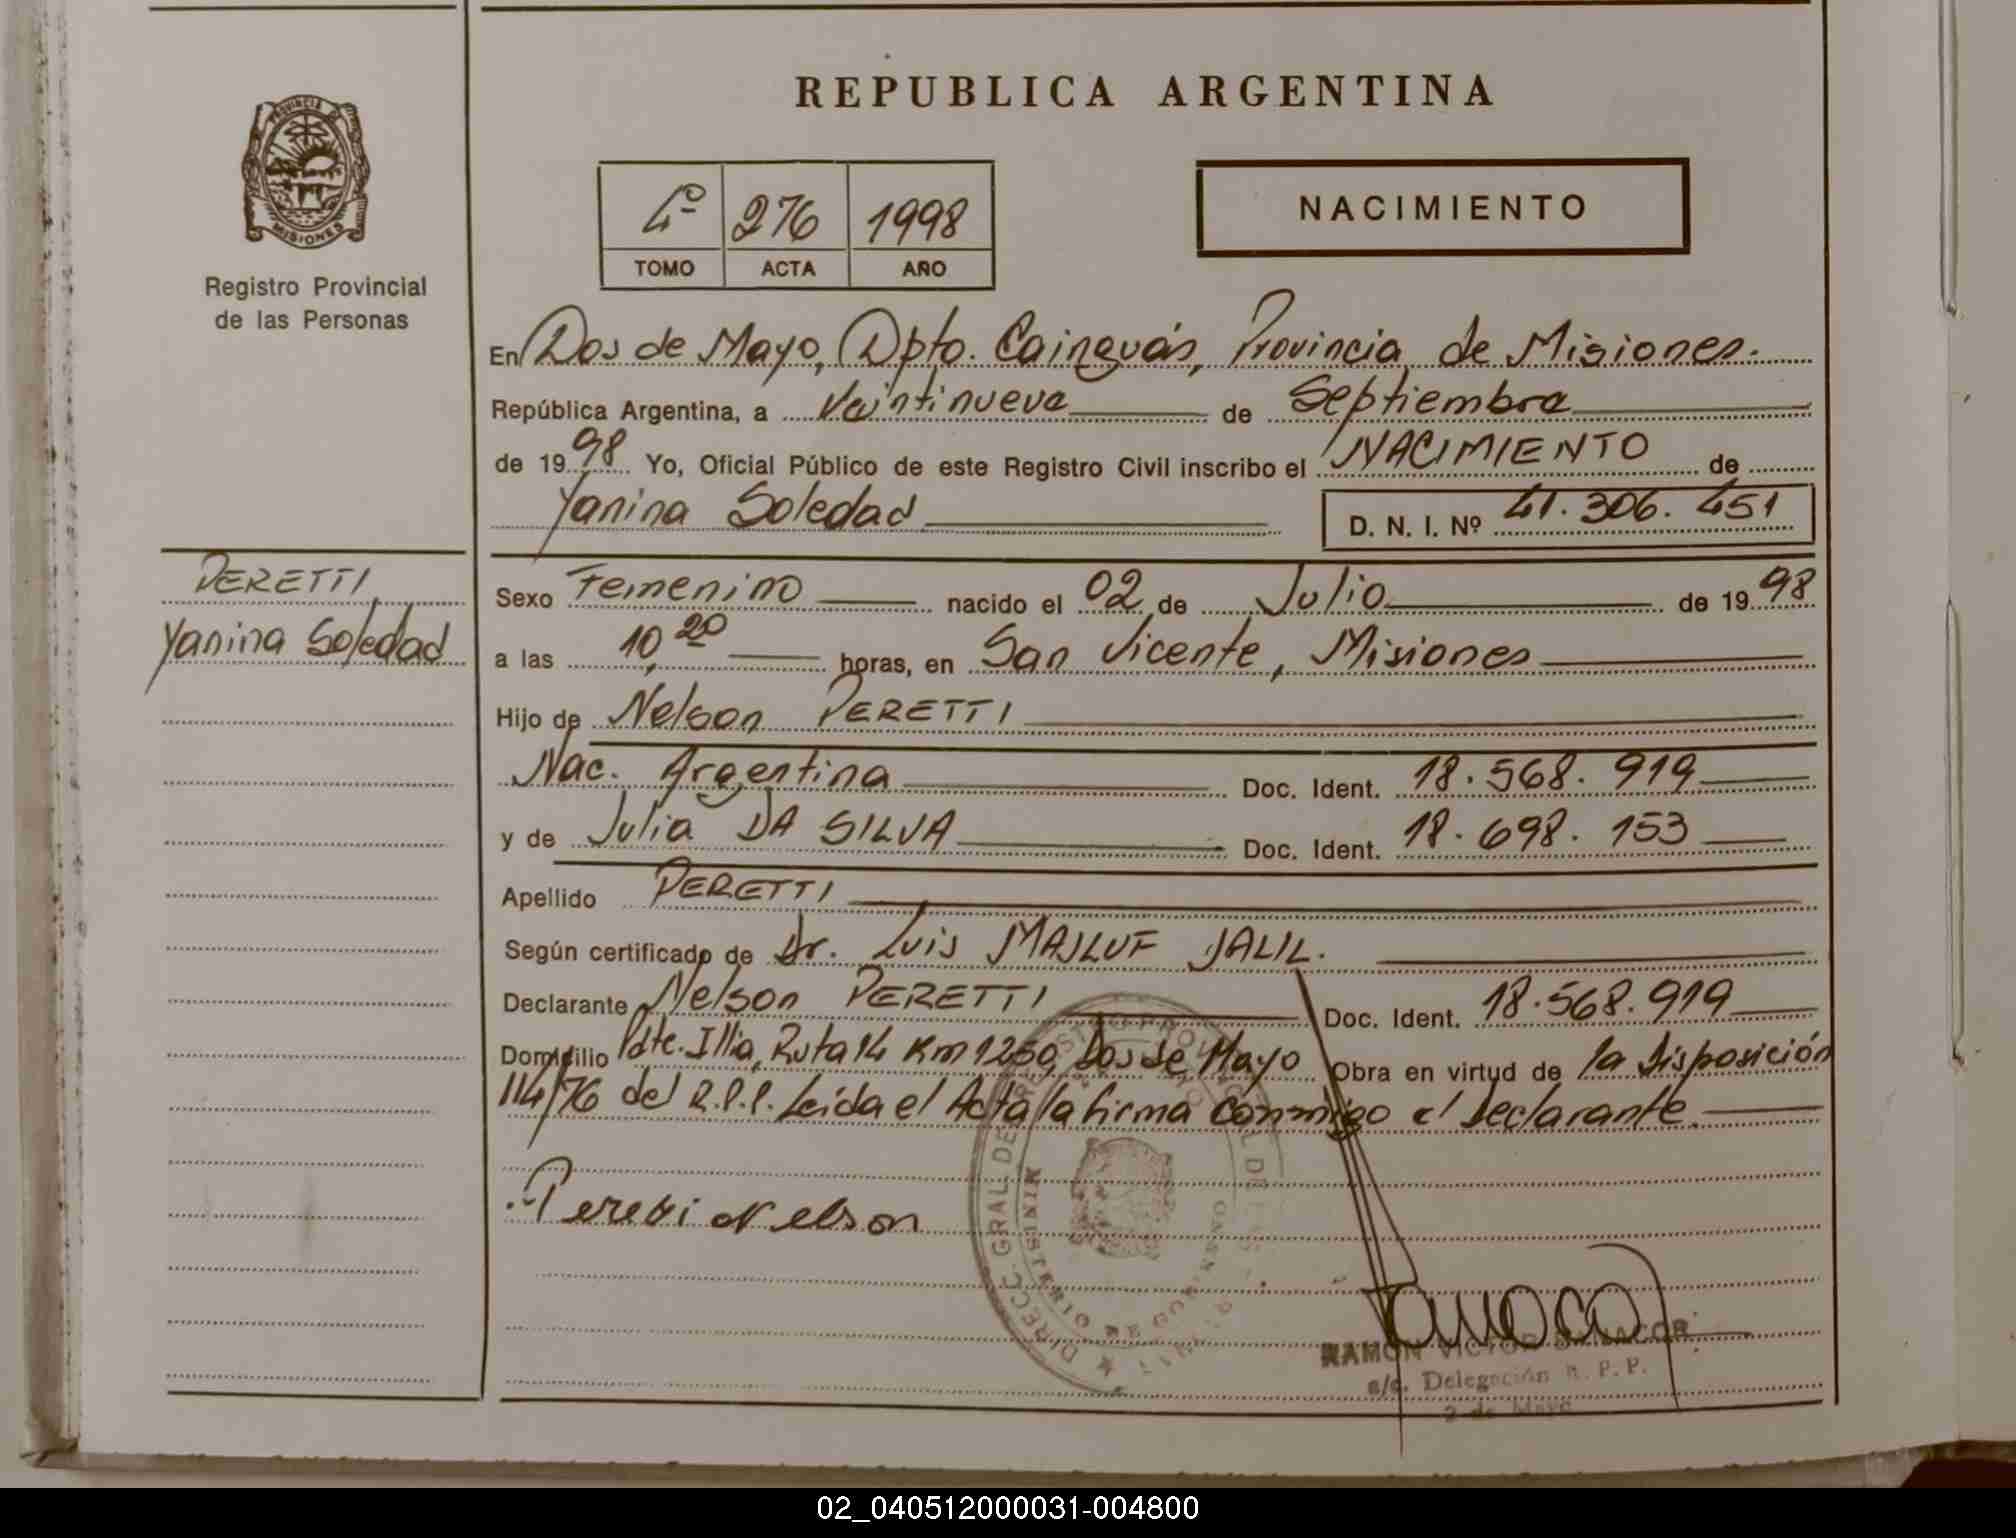 REPUBLICA ARGENTINA
PROVINCIA DE
MISIONES
Registro Provincial
de las Personas
4º 276 1998
TOMO ACTA AÑO
NACIMIENTO
En Dos de Mayo, Dpto. Cainguás, Provincia de Misiones.
República Argentina, a Veintinueve de Septiembre
de 1998 Yo, Oficial Público de este Registro Civil inscribo el NACIMIENTO de
Yanina Soledad D. N. I. Nº 41.306.451
PERETTI
Yanina Soledad
Sexo Femenino nacido el 02 de Julio de 1998
a las 10,20 horas, en San Vicente, Misiones
Hijo de Nelson PERETTI
Nac. Argentina Doc. Ident. 18.568.919
y de Julia DA SILVA Doc. Ident. 18.698.153
Apellido PERETTI
Según certificado de Dr. Luis MAJLUF JALIL.
Declarante Nelson PERETTI Doc. Ident. 18.568.919
Domicilio Pdte. Illia, Ruta 14 Km 1250, Dos de Mayo Obra en virtud de la Disposición
114/76 del R.P.P. Leída el Acta la firma conmigo el Declarante.
Peretti Nelson
DIRECC. GRAL. DE REGISTRO PROVINCIAL DE
MINISTERIO DE GOBIERNO
RAMON VICTOR
a/c. Delegación R. P. P.
2 de Mayo
02_040512000031-004800